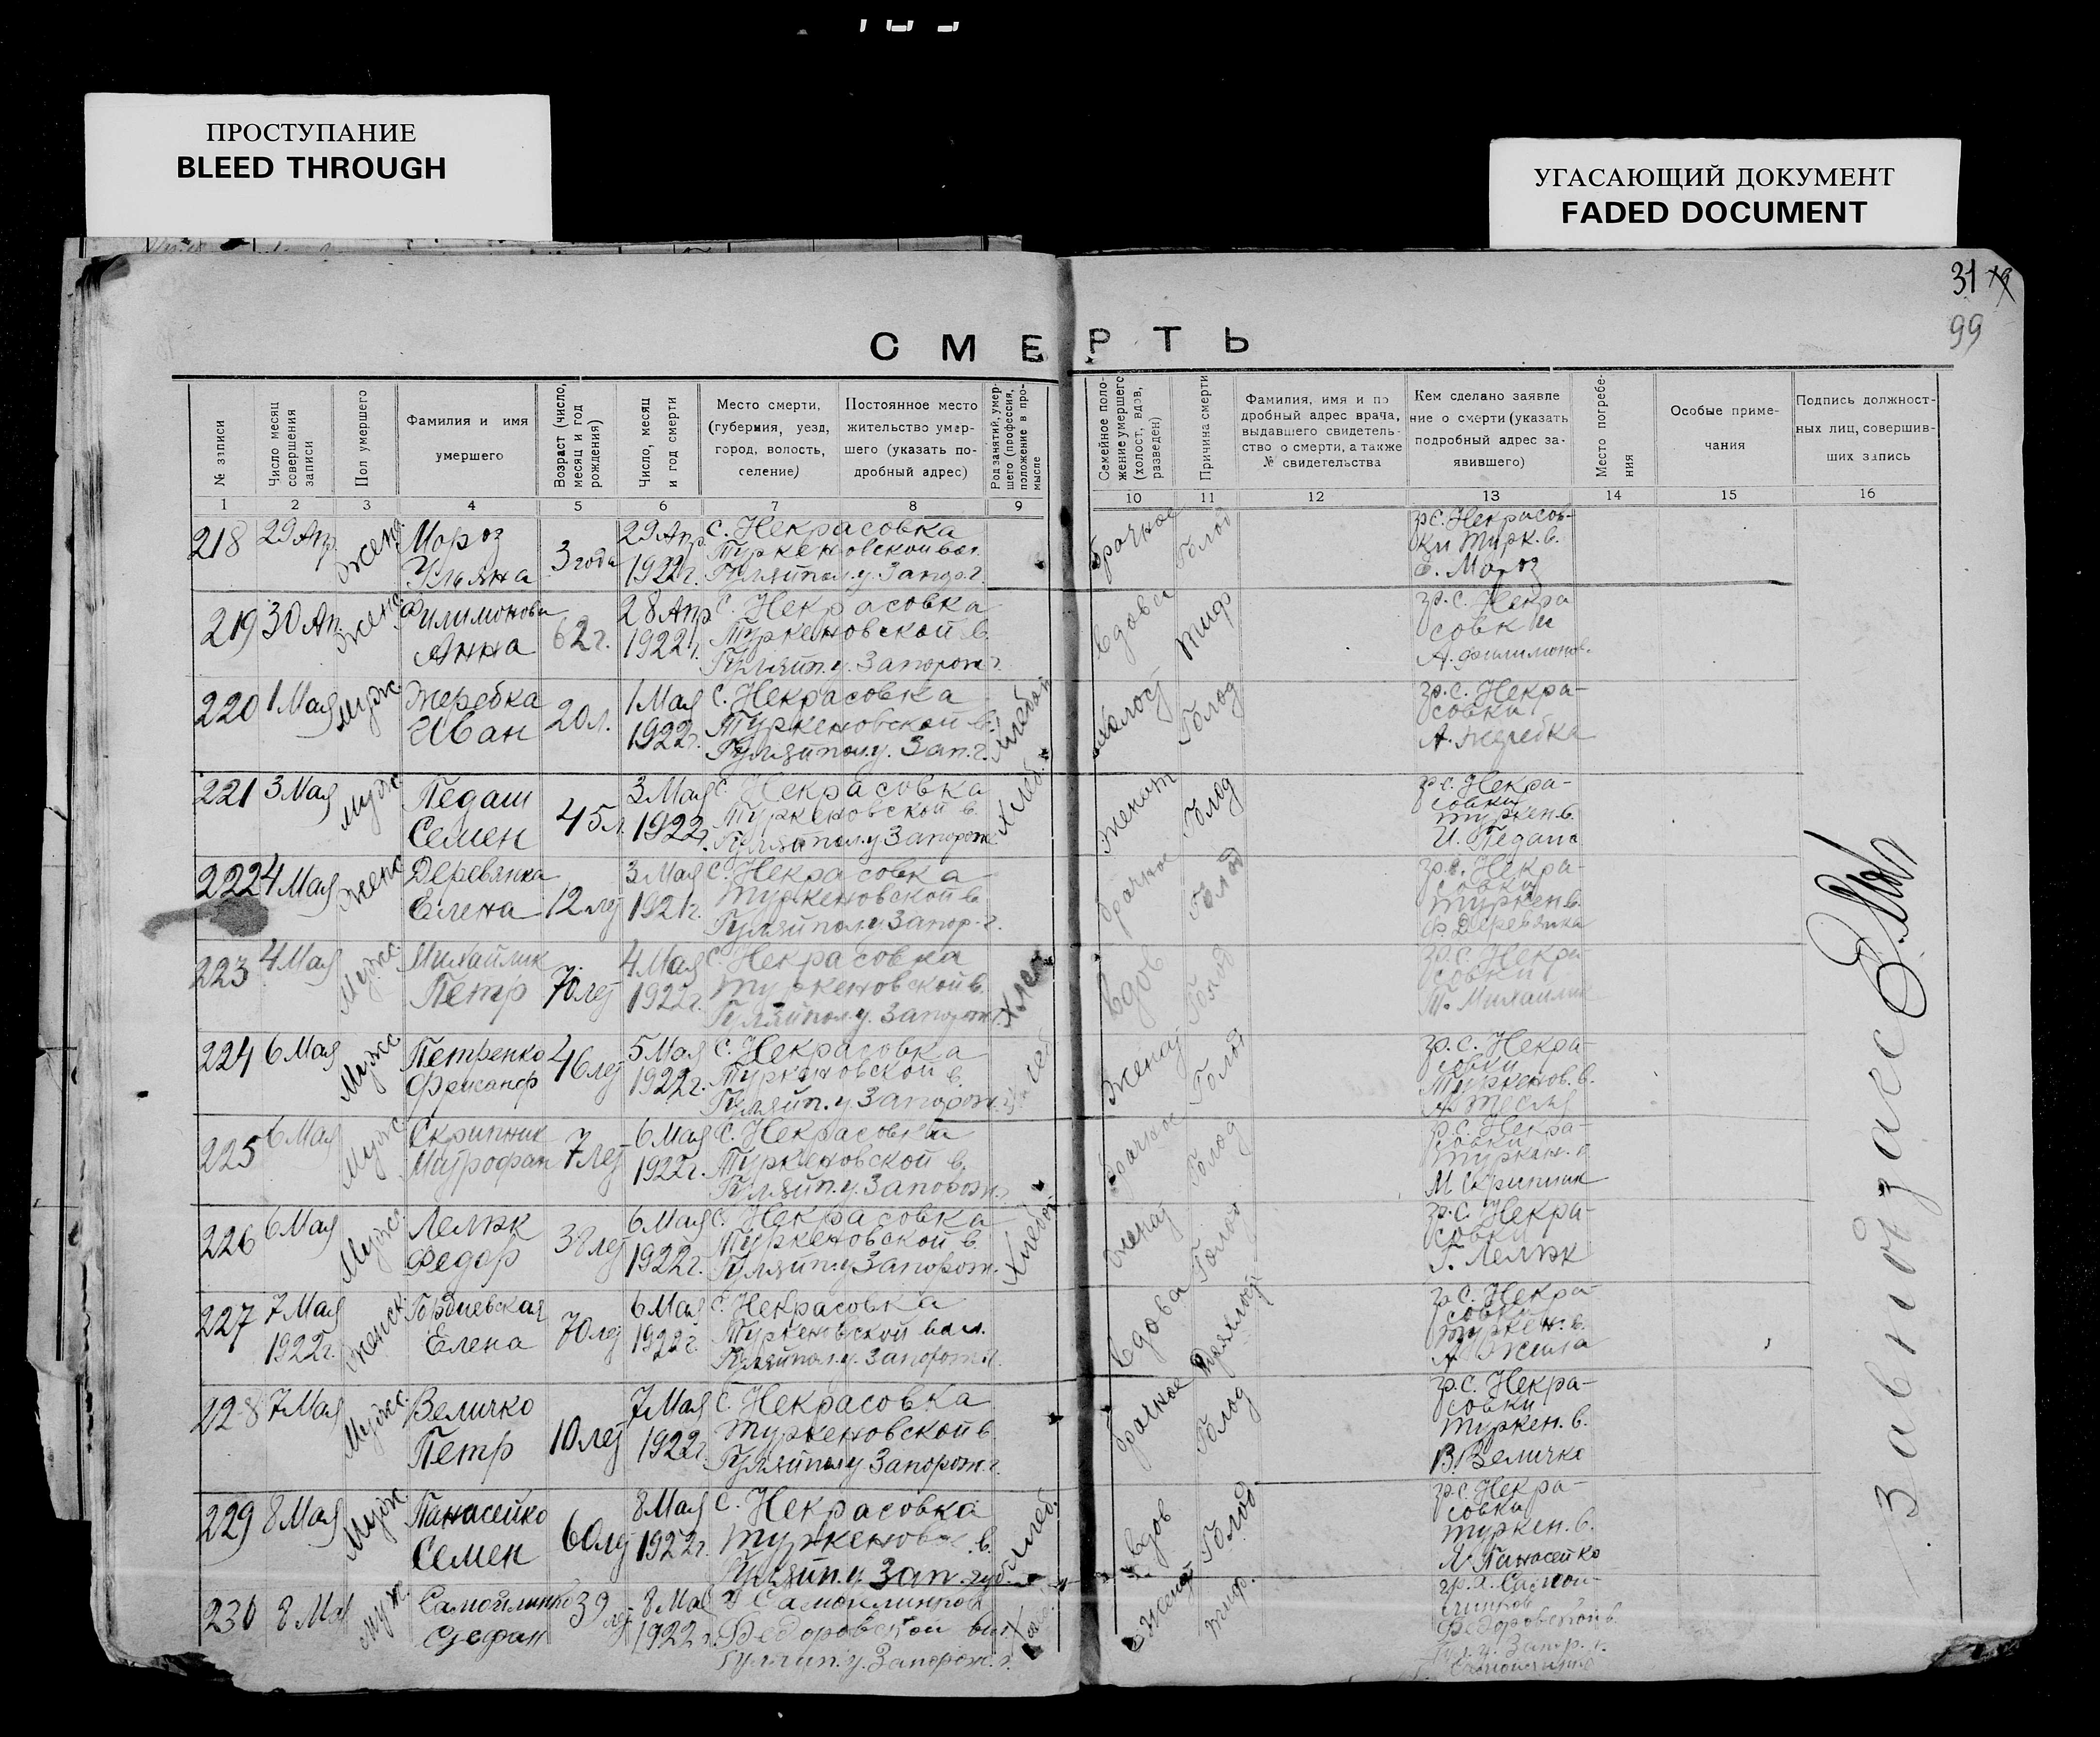 ПРОСТУПАНИЕ
BLEED THROUGH
УГАСАЮЩИЙ ДОКУМЕНТ
FADED DOCUMENT
31
99
СМЕРТЬ
№ записи
Число месяц совершения записи
Пол умершего
Фамилия и имя умершего
Возраст (число, месяц и год рождения)
Число, месяц и год смерти
Место смерти, (губерния, уезд, город, волость, селение)
Постоянное место жительство умершего (указать подробный адрес)
Род занятий, умершего (профессия, положение в промысле
Семейное положение умершего (холост, вдов, разведен)
Причина смерти
Фамилия, имя и подробный адрес врача, выдавшего свидетельство о смерти, а также № свидетельства
Кем сделано заявление о смерти (указать подробный адрес заявившего)
Место погребения
Особые примечания
Подпись должностных лиц, совершивших запись
1 2 3 4 5 6 7 8 9 10 11 12 13 14 15 16
218 29 Ап. женс. Мороз Ульяна 3 года 29 Апр. 1922 г. с. Некрасовка Туркеновской вол. Гуляйпол. у. Запор. г. брачное Голод гр. с. Некрасовки Турк. в. Мороз
219 30 Ап. женс. Филимонова Анна 62 г. 28 Апр 1922 г. с. Некрасовка Туркеновской в. Гуляйп. у. Запорож. г. вдова Тиф гр. с. Некрасовки А. Филимонов
220 1 Мая Мужс. Жеребка Иван 20 л. 1 Мая 1922 г. с. Некрасовка Туркеновской в. Гуляйпол. у. Зап. г. Хлебоп холост Голод гр. с. Некрасовки А. Жеребка
221 3 Мая Мужс. Педаш Семен 45 л. 3 Мая 1922 г. с. Некрасовка Туркеновской в. Гуляйпол. у. Запорож. Хлеб. женат Голод гр. с. Некрасовки Туркен в. И. Педаш
222 4 Мая женс. Деревянка Елена 12 лет 3 Мая 1921 г. с. Некрасовка Туркеновской в. Гуляйпол. у. Запор. г. брачное Голод гр. с. Некрасовки Туркен в. Ф. Деревянка
223 4 Мая Мужс. Михайлик Петр 70 лет 4 Мая 1922 г. с. Некрасовка Туркеновской в. Гуляйпол. у. Запорож. г. Хлеб вдов Голод гр. с. Некрасовки Т. Михайлик
224 6 Мая Мужс. Петренко 46 лет 5 Мая 1922 г. с. Некрасовка Туркеновской в. Гуляйп. у. Запорож. Хлеб женат Голод гр. с. Некрасовки Туркенов. в.
225 6 Мая Мужс. Скрипник Митрофан 7 лет 6 Мая 1922 г. с. Некрасовка Туркеновской в. Гуляйп. у. Запорож. г. брачное Голод гр. с. Некрасовки М Скрипник
226 6 Мая Мужс. Лемяк Федор 38 лет 6 Мая 1922 г. с. Некрасовка Туркеновской в. Гуляйп. у. Запорож. Хлебоп женат Голод гр. с. Некрасовки Г. Лемяк
227 7 Мая 1922 г. женск. Гордиевская Елена 70 лет 6 Мая 1922 г. с. Некрасовка Туркеновской вол. Гуляйпол. у. Запорож. г. вдова Дряхлост гр. с. Некрасовки Туркен. в.
228 7 Мая Мужс. Величко Петр 10 лет 7 Мая 1922 г. с. Некрасовка Туркеновской в. Гуляйпол. у. Запорож. г. брачное Голод гр. с. Некрасовки Туркен. в. В. Величко
229 8 Мая Мужс. Панасейко Семен 60 лет 8 Мая 1922 г. с. Некрасовка Туркеновск. в. Гуляйп. у. Зап. губ. Хлеб. вдов Голод гр. с. Некрасовки Туркен. в. Панасейко
230 8 Мая Муж. Стефан 39 лет 8 Мая 1922 г. Федоровской вол Гуляйп. у. Запорож. г. женат Тиф. Федоровской в.
Завидзагс